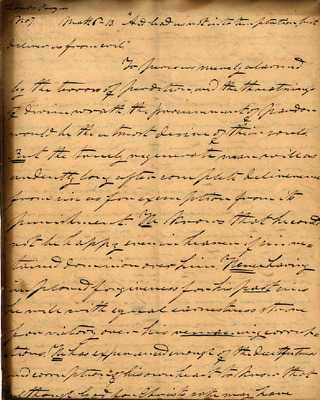 No 7 Matt 6-13 "And lead us not into temptation but
deliver us from evil"
To persons merely alarmed
by the terrors of perdition and the threatenings
of divine wrath the procurement of pardon
would be the utmost desire of their souls
But the truly regenerate man will as
ardently long after complete deliverance
from sin as for exemption from its
punishment He knows that he could
not be happy even in heaven if sin re-
tained dominion over him Hence having
implored forgiveness for his past sins
he will with equal earnestness strive
for victory over his remaining corrup
tions. He has experienced enough of the
and corruption of his own heart to know that
although God for Christ's sake may have